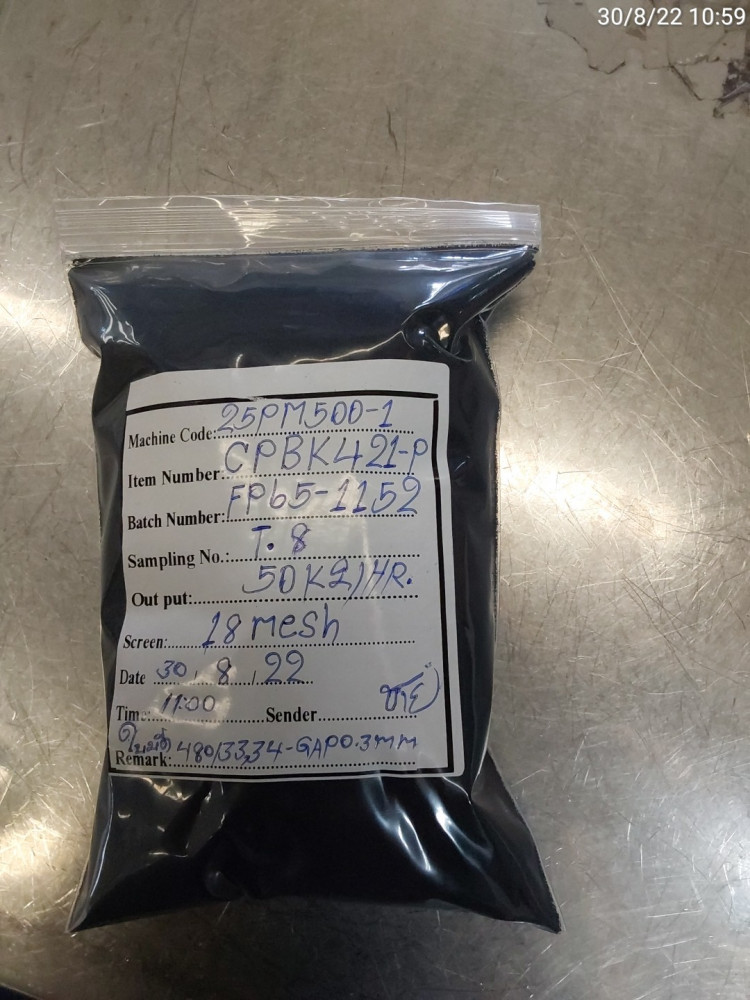 30/8/22 10:59
Machine Code: 25PM500-1
Item Number: CPBK421-P
Batch Number: FP65-1152
Sampling No.: T. 8
Out put: 50 Kg/HR.
Screen: 18 mesh
Date 30 / 8 / 22
Time: 11:00 Sender
Remark: ใบมีด 480/33,34-GAP0.3mm